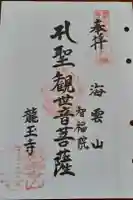 奉拝
海雲山
智福院
孔聖觀世音菩薩
龍玉寺